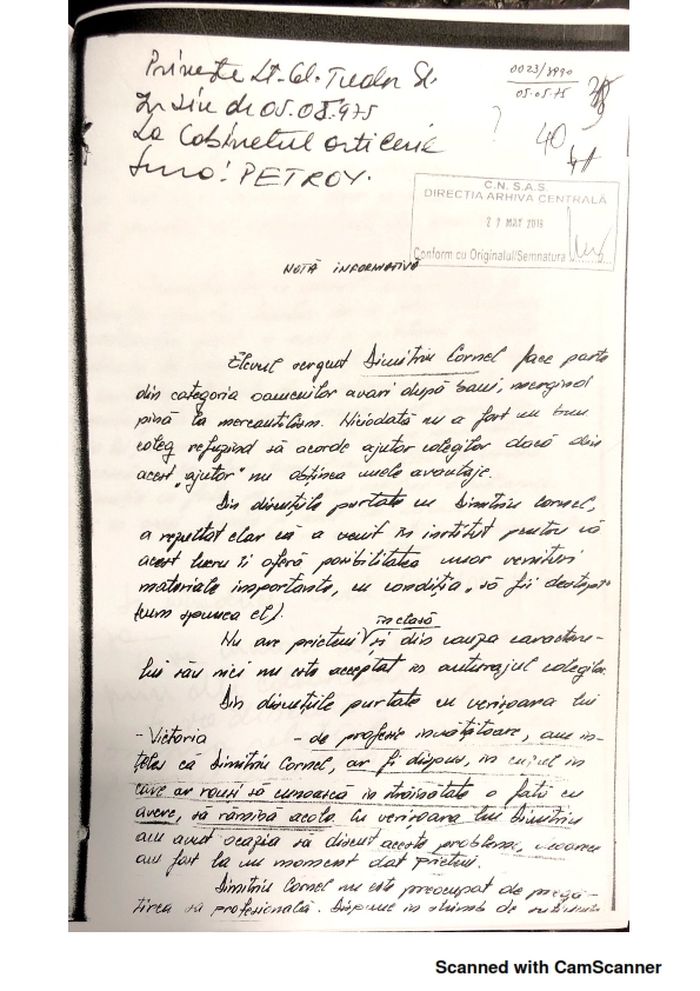 Privește Lt. Col. Tudor St.
În ziua de 05.05.975
La Cabinetul
Sursa: PETROV.
0023/3990
05.05.75
?
40
C.N.S.A.S.
DIRECTIA ARHIVA CENTRALĂ
2 7 MAY 2019
Conform cu Originalul/Semnatura
NOTĂ INFORMATIVĂ
Elevul sergent Dimitriu Cornel face parte
din categoria oamenilor avari după bani, mergînd
pînă la mercantilism. Niciodată nu a fost un bun
coleg refuzînd să acorde ajutor colegilor dacă din
acest „ajutor" nu obținea unele avantaje.
Din discuțiile purtate cu Dimitriu Cornel,
a rezultat clar că a venit în institut pentru că
acest lucru îi oferă posibilitatea unor venituri
materiale importante, cu condiția „să fii deștept"
(cum spunea el).
în clasă
Nu are prieteni și din cauza caracteru-
lui său nici nu este acceptat în anturajul colegilor.
Din discuțiile purtate cu verișoara lui
- Victoria - de profesie învățătoare, am în-
țeles că Dimitriu Cornel, ar fi dispus, în cazul în
care ar reuși să cunoască în străinătate o fată cu
avere, să rămînă acolo. Cu verișoara lui Dimitriu
am avut ocazia să discut aceste probleme, deoarece
am fost la un moment dat prieteni.
Dimitriu Cornel nu este preocupat de pregă-
tirea sa profesională. Dispune în schimb de
Scanned with CamScanner